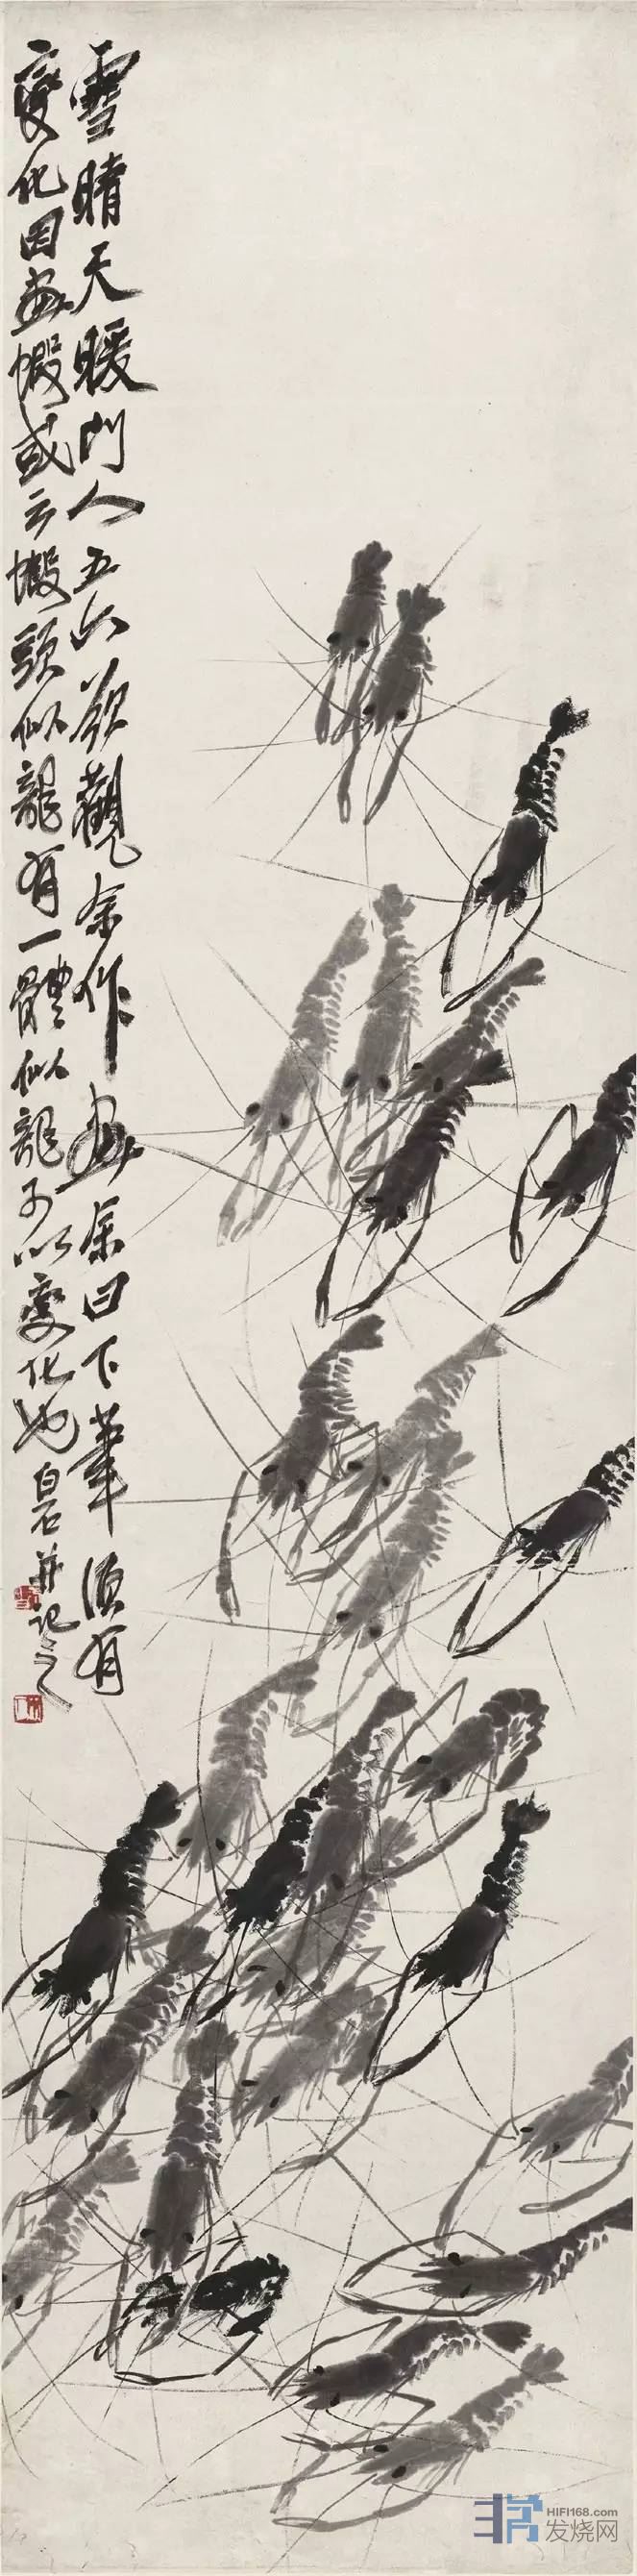 雪晴天暖門人五六欲觀余作畫余曰下筆須有
變化因畫蝦或云蝦頭似龍有一體似龍予以變化也白石并記之
HIFI168.com
发烧网